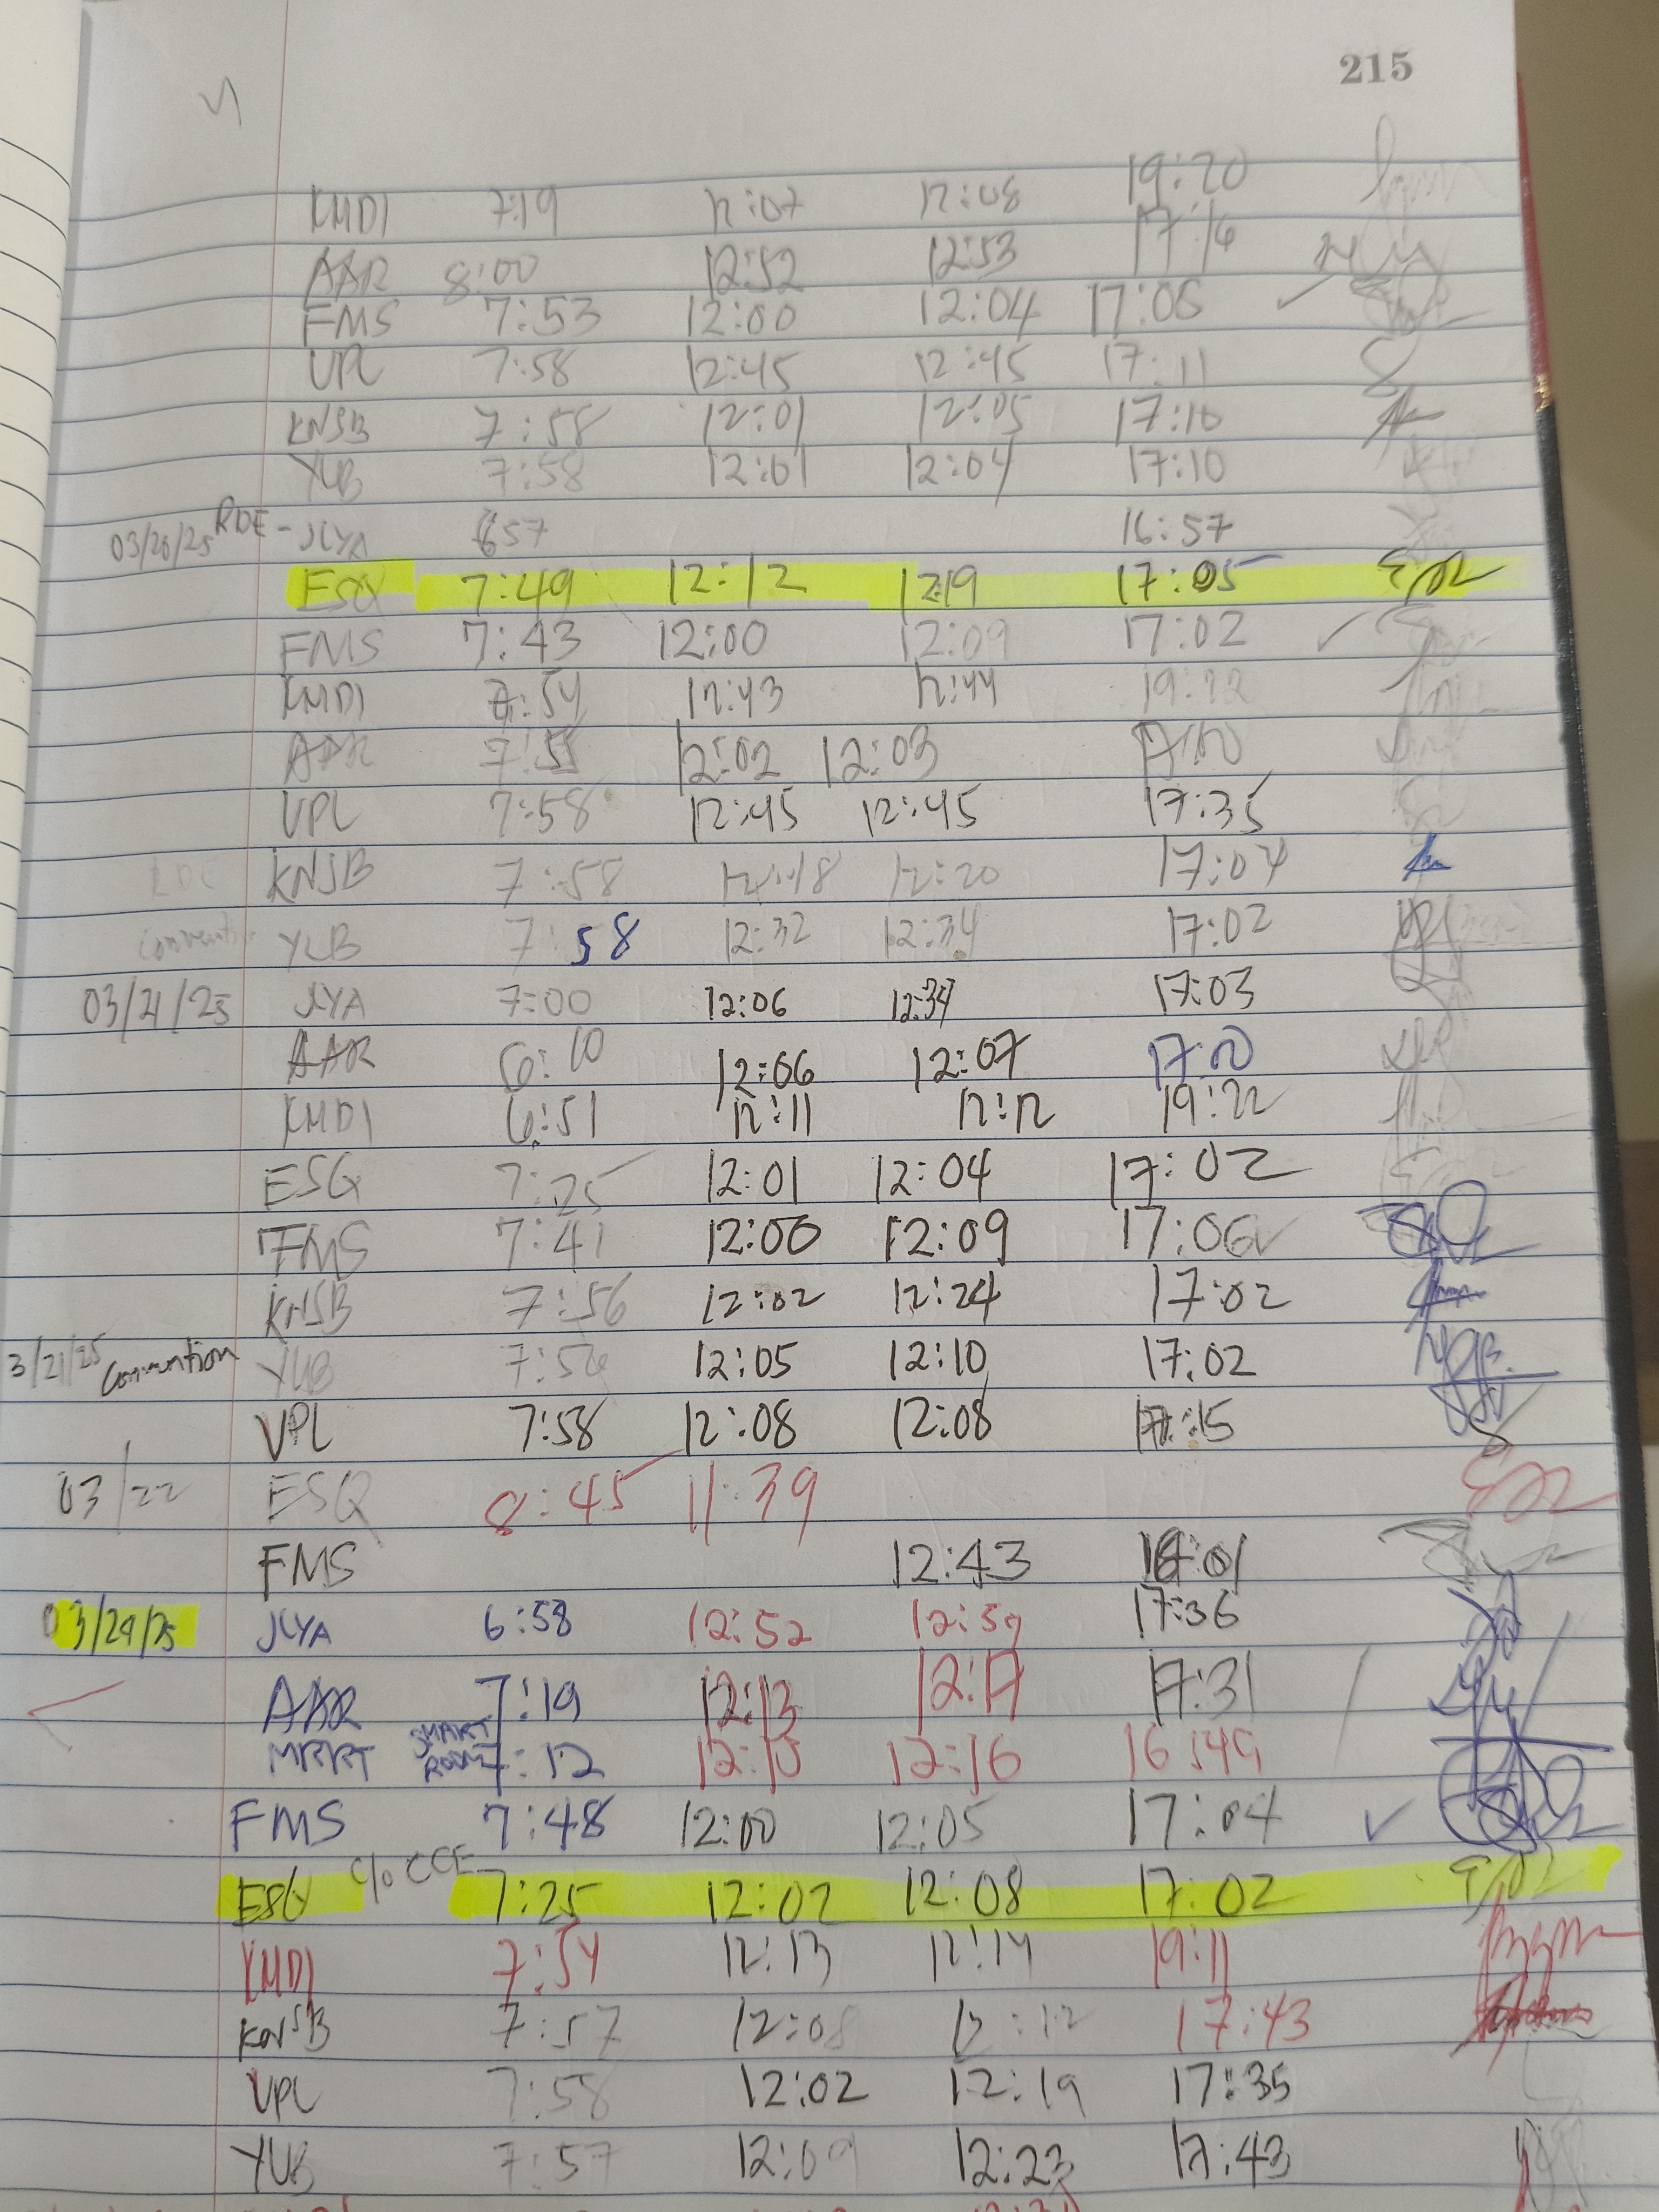 215
KMDI 7:19 12:07 12:08 19:20
AAR 8:00 12:52 12:53 17:16
FMS 7:53 12:00 12:04 17:05
VPL 7:58 12:45 12:45 17:11
KNSB 7:58 12:01 12:05 17:10
YLB 7:58 12:01 12:04 17:10
03/20/25 RDE - JLYA 657 16:57
ESQ 7:49 12:12 1219 17:05
FMS 7:43 12:00 12:09 17:02
KMDI 7:54 12:43 12:44 19:22
AAR 7:55 12:02 12:03
VPL 7:58 12:45 12:45 17:35
RDE KNSB 7:58 12:18 12:20 17:04
Convention YLB 7:58 12:32 12:34 17:02
03/21/25 JLYA 7:00 12:06 12:34 17:03
AAR 6:10 12:06 12:07 17:20
KMDI 6:51 12:11 12:12 19:22
ESQ 7:25 12:01 12:04 17:02
FMS 7:41 12:00 12:09 17:06
KNSB 7:56 12:02 12:24 17:02
3/21/25 Convention YLB 7:56 12:05 12:10 17:02
VPL 7:58 12:08 12:08 17:15
03/22 ESQ 8:45 11:39
FMS 12:43
03/24/25 JLYA 6:58 12:52 12:57 17:36
AAR 7:19 12:13 12:17 17:31
MRRT SMART ROOM 7:12 12:10 12:16 16:49
FMS 7:48 12:00 12:05 17:04
ESQ C/o CCE 7:25 12:02 12:08 17:02
KMDI 7:54 12:13 12:14 19:11
KNSB 7:57 12:08 12:12 17:43
VPL 7:58 12:02 12:19 17:35
YLB 7:57 12:09 12:23 17:43